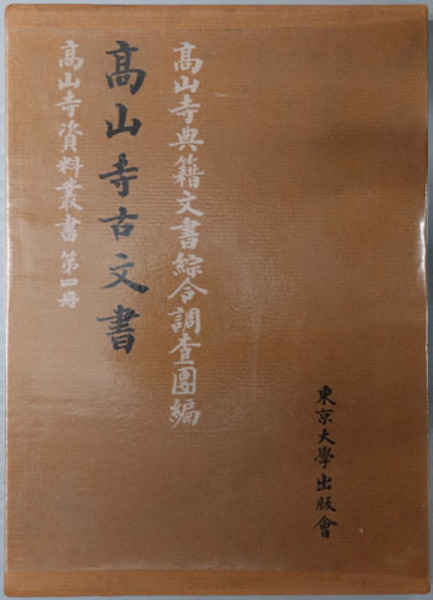 髙山寺典籍文書綜合調査團編
髙山寺古文書
髙山寺資料叢書 第四册
東京大學出版會